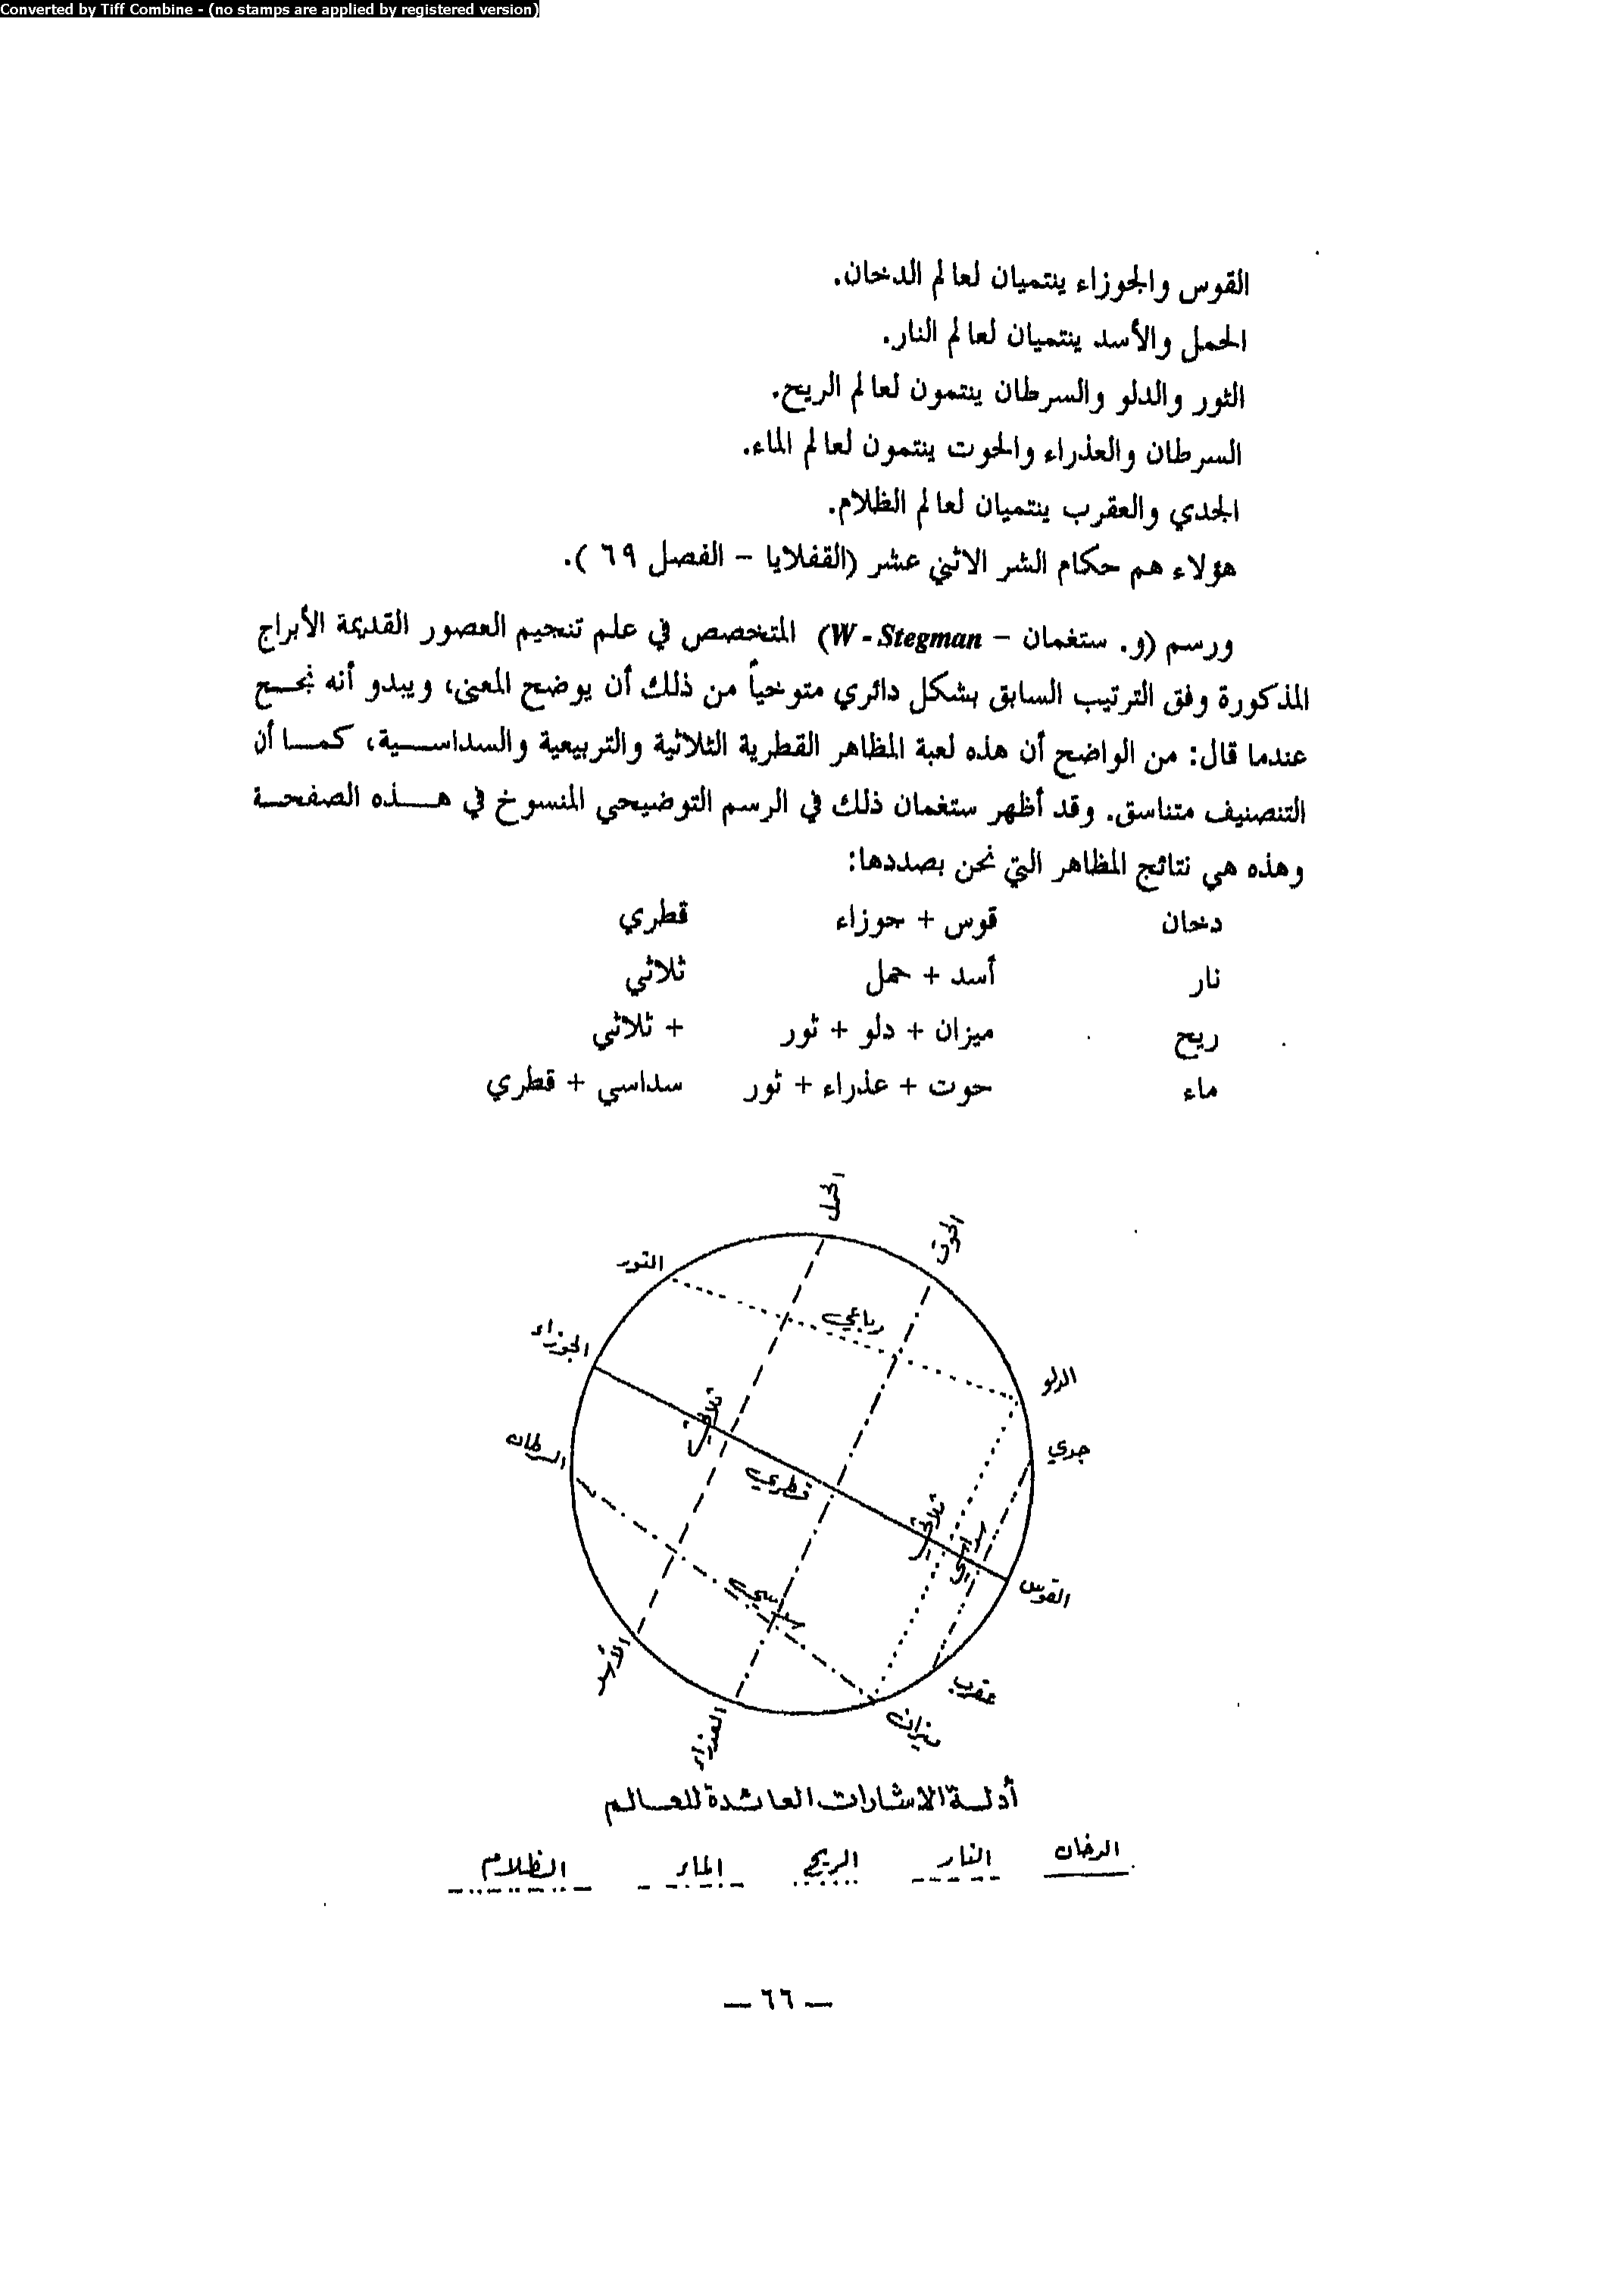 Converted by Tiff Combine - (no stamps are applied by registered version)
القوس والجوزاء ينتميان لعالم الدخان.
الحمل والأسد ينتميان لعالم النار.
الثور والدلو والسرطان ينتمون لعالم الريح.
السرطان والعذراء والحوت ينتمون لعالم الماء.
الجدي والعقرب ينتميان لعالم الظلام.
هؤلاء هم حكام الشر الاثني عشر (القفلايا – الفصل ٦٩).
ورسم (و. ستغمان – W - Stegman) المتخصص في علم تنجيم العصور القديمة الأبراج
المذكورة وفق الترتيب السابق بشكل دائري متوخياً من ذلك أن يوضح المعنى، ويبدو أنه نجح
عندما قال: من الواضح أن هذه لعبة المظاهر القطرية الثلاثية والتربيعية والسداسية، كما أن
التصنيف متناسق. وقد أظهر ستغمان ذلك في الرسم التوضيحي المنسوخ في هذه الصفحة
وهذه هي نتائج المظاهر التي نحن بصددها:
دخان قوس + جوزاء قطري
نار أسد + حمل ثلاثي
ريح ميزان + دلو + ثور + ثلاثي
ماء حوت + عذراء + ثور سداسي + قطري
الحمل
الحوت
الثور
رباعي
الجوزاء
الدلو
ثلاثي
السرطان
جدي
قطري
ثلاثي
سداسي
القوس
سداسي
الأسد
عقرب
العذراء
ميزان
أدلة الاشارات العائدة للعالم
الدخان النار الريح الماء الظلام
— ٦٦ —